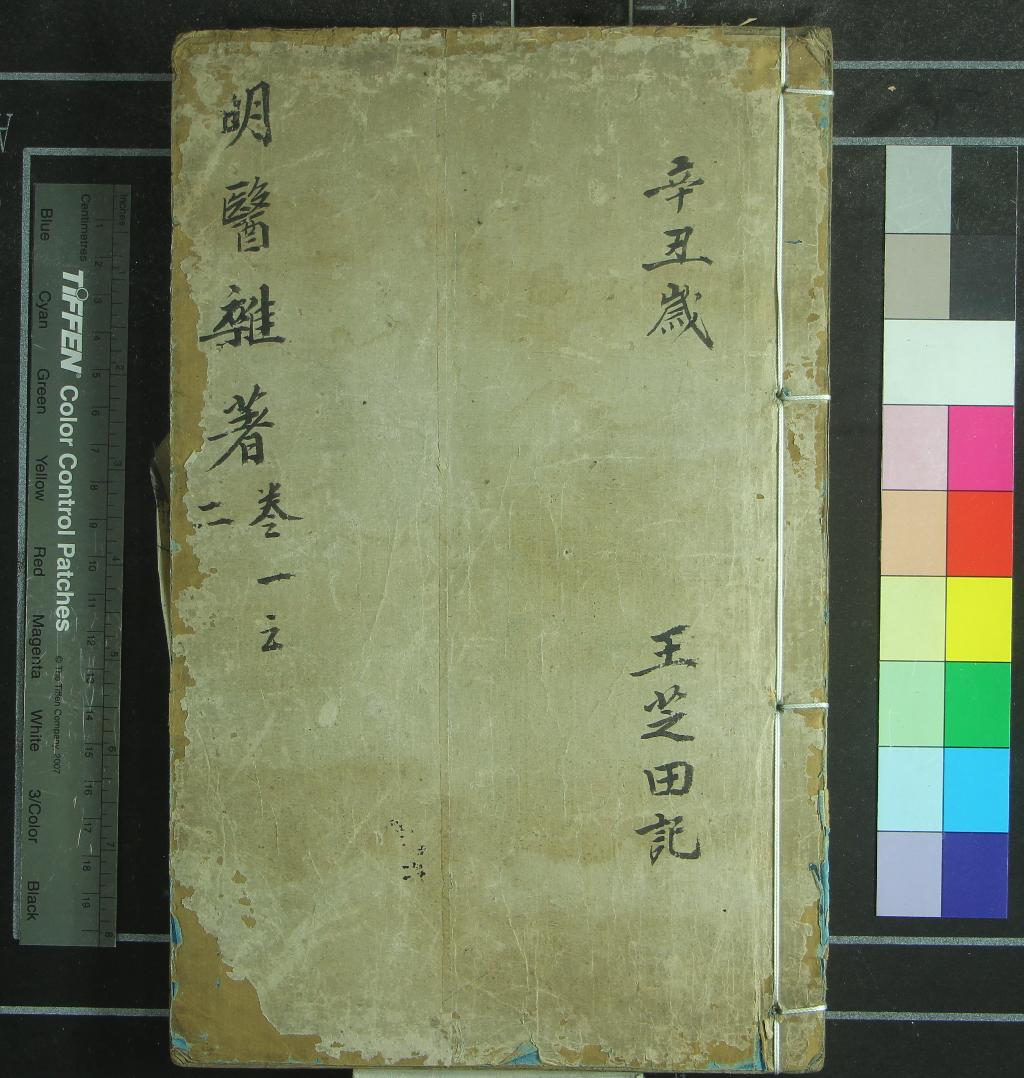 辛丑歲
王芝田記
明醫雜著
卷一
二
Inches
Centimetres
TIFFEN® Color Control Patches
© The Tiffen Company, 2007
Blue
Cyan
Green
Yellow
Red
Magenta
White
3/Color
Black
1 2 3 4 5 6 7 8 9 10 11 12 13 14 15 16 17 18 19
2 3 4 5 6 7 8
A